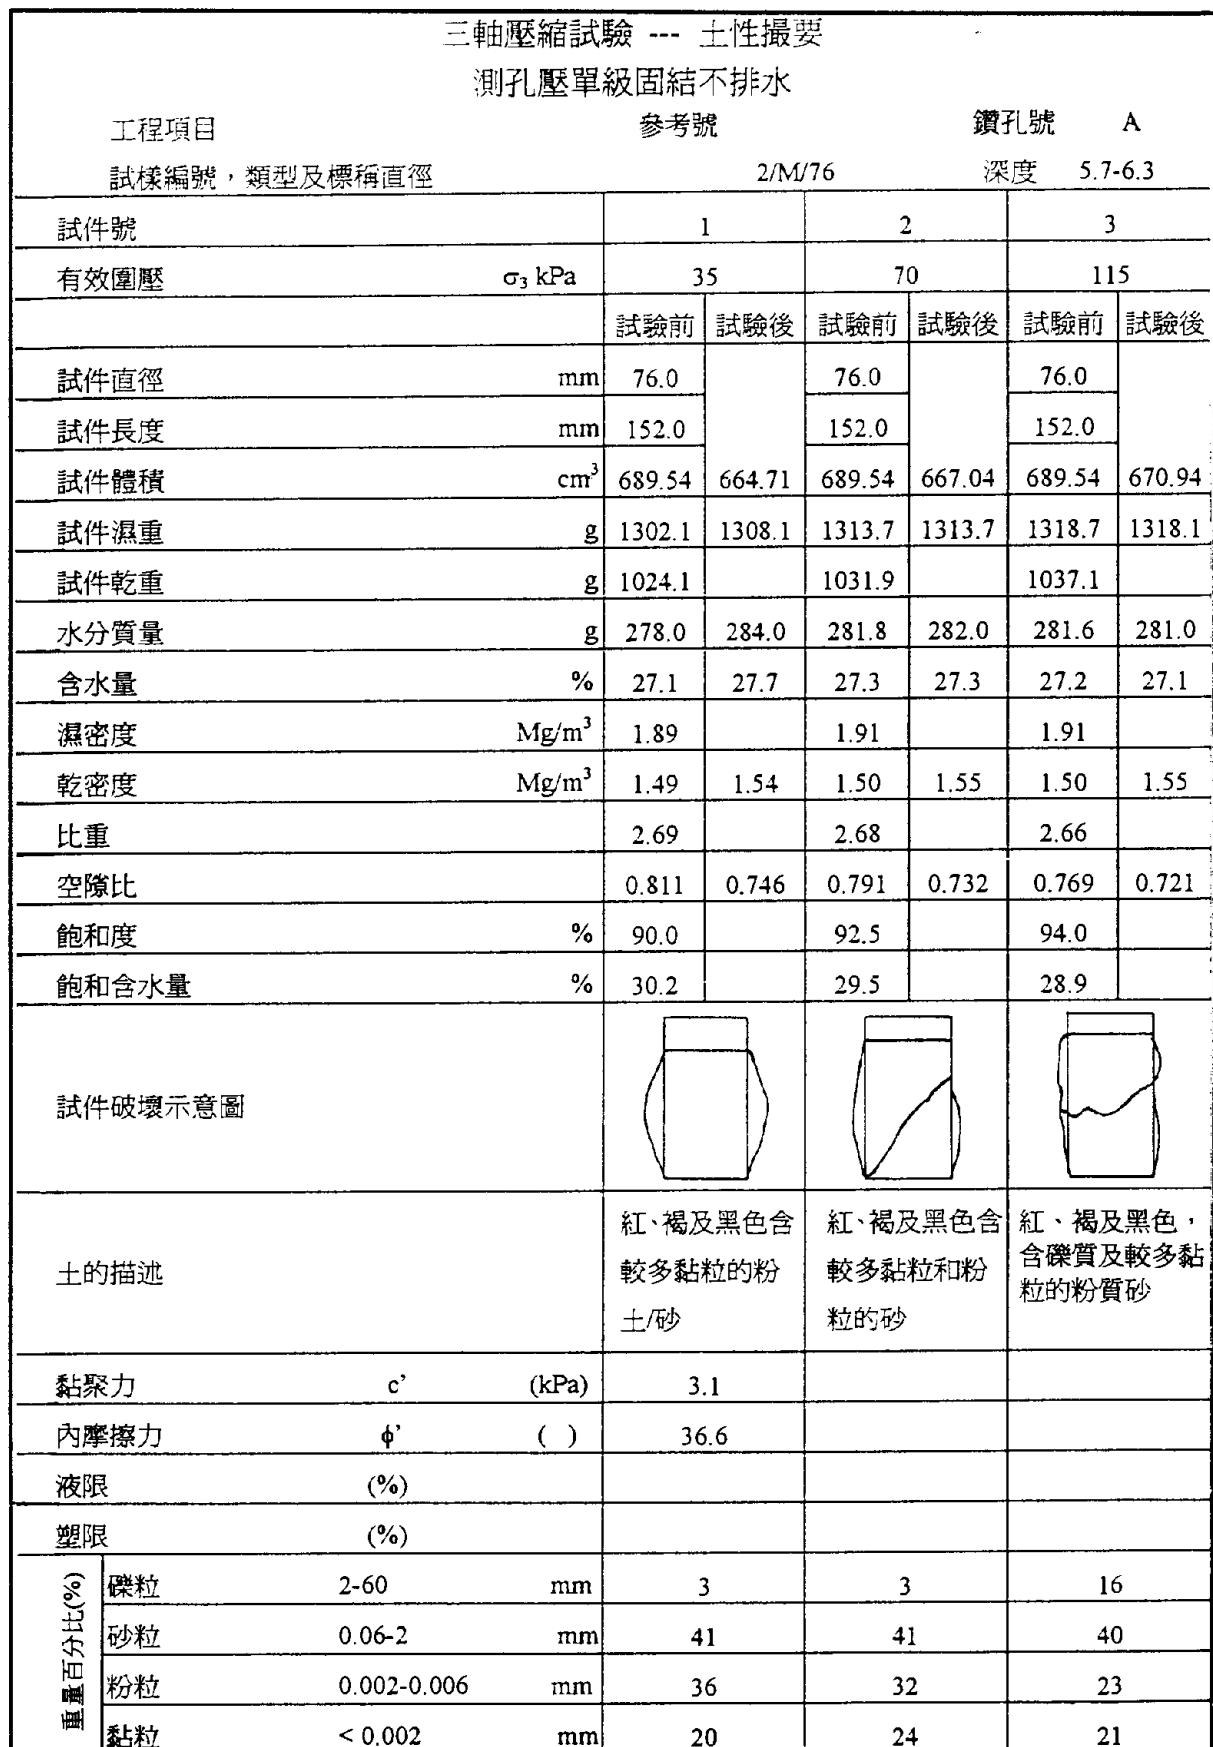 三軸壓縮試驗 --- 土性撮要
測孔壓單級固結不排水
工程項目 參考號 鑽孔號 A
試樣編號，類型及標稱直徑 2/M/76 深度 5.7-6.3
試件號 1 2 3
有效圍壓 σ3 kPa 35 70 115
試驗前 試驗後 試驗前 試驗後 試驗前 試驗後
試件直徑 mm 76.0 76.0 76.0
試件長度 mm 152.0 152.0 152.0
試件體積 cm³ 689.54 664.71 689.54 667.04 689.54 670.94
試件濕重 g 1302.1 1308.1 1313.7 1313.7 1318.7 1318.1
試件乾重 g 1024.1 1031.9 1037.1
水分質量 g 278.0 284.0 281.8 282.0 281.6 281.0
含水量 % 27.1 27.7 27.3 27.3 27.2 27.1
濕密度 Mg/m³ 1.89 1.91 1.91
乾密度 Mg/m³ 1.49 1.54 1.50 1.55 1.50 1.55
比重 2.69 2.68 2.66
空隙比 0.811 0.746 0.791 0.732 0.769 0.721
飽和度 % 90.0 92.5 94.0
飽和含水量 % 30.2 29.5 28.9
試件破壞示意圖
土的描述
紅、褐及黑色含
較多黏粒的粉
土/砂
紅、褐及黑色含
較多黏粒和粉
粒的砂
紅、褐及黑色，
含礫質及較多黏
粒的粉質砂
黏聚力 c’ (kPa) 3.1
內摩擦力 ϕ’ ( ) 36.6
液限 (%)
塑限 (%)
重量百分比(%)
礫粒 2-60 mm 3 3 16
砂粒 0.06-2 mm 41 41 40
粉粒 0.002-0.006 mm 36 32 23
黏粒 < 0.002 mm 20 24 21